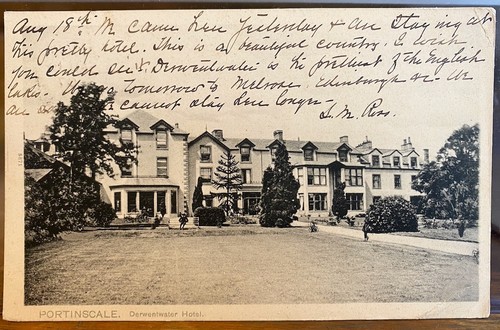 Aug 18th We came here Yesterday & are staying at
this pretty hotel. This is a beautiful country. I wish
you could see it. Derwentwater is the prettiest of the English
lakes. We go tomorrow to Melrose, Edinburgh &c. We
are cannot stay here longer.
L. M. Ross.
PORTINSCALE. Derwentwater Hotel.